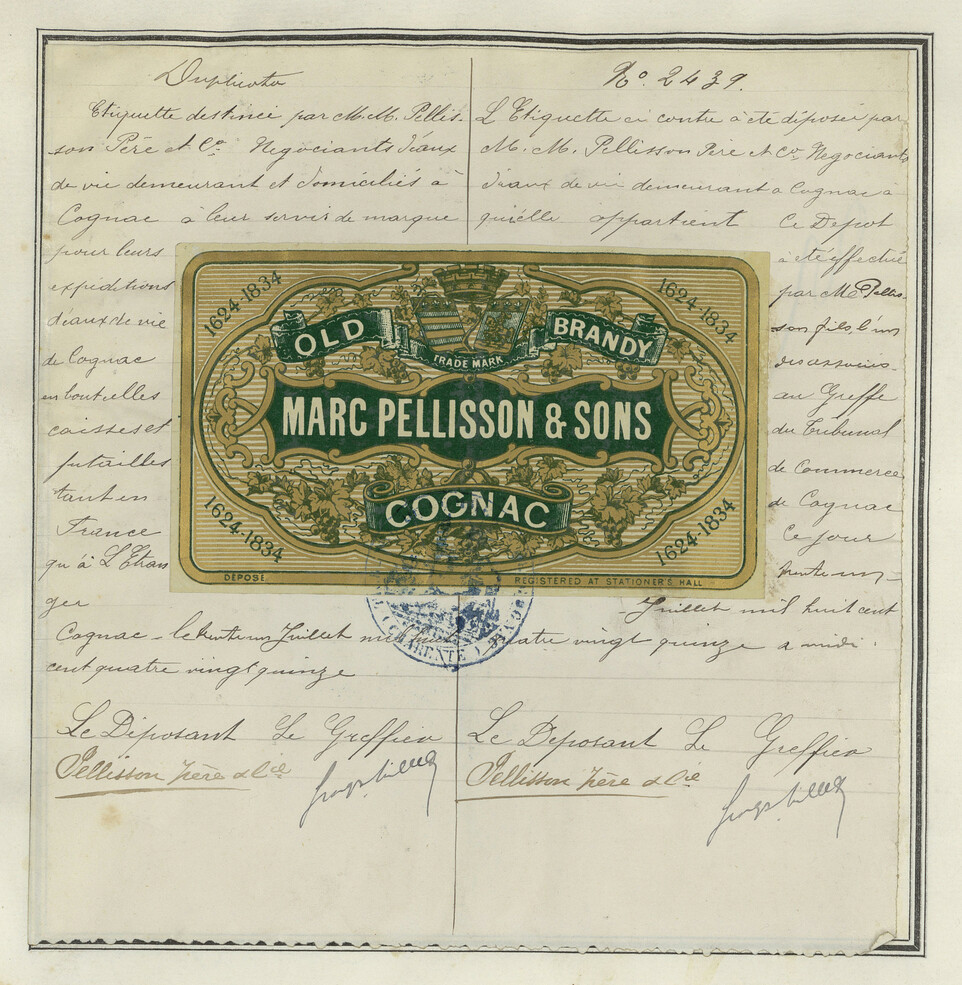 Duplicata
Etiquette destinée par M. M. Pellis-
son Père et Co Negociants d'eaux
de vie demeurant et domiciliés à
Cognac à leur servir de marque
pour leurs
expéditions
d'eaux de vie
de Cognac
en bouteilles
caisses et
futailles
tant en
France
qu'à L'Etran
ger
Cognac - le trente un Juillet mil huit
cent quatre vingt quinze
Le Déposant Le Greffier
Pellisson père & Cie
No 2439.
L'Etiquette ci contre à été déposée par
M. M. Pellisson Père et Co Negociants
d'eaux de vie demeurant a Cognac a
qui elle appartient Ce Depot
à été effectué
par M Pellis-
son fils, l'un
des associés
au Greffe
du Tribunal
de Commerce
de Cognac
Ce jour
trente un
Juillet mil huit cent
quatre vingt quinze a midi.
Le Déposant Le Greffier
Pellisson père & Cie
1624-1834
1624-1834
OLD BRANDY
TRADE MARK
MARC PELLISSON & SONS
COGNAC
1624-1834
1624-1834
DÉPOSÉ
REGISTERED AT STATIONER'S HALL
CHARENTE